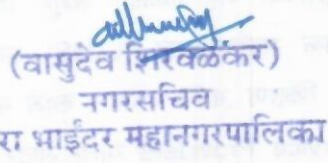 (वासुदेव शिरवळकर)
नगरसचिव
रा भाईंदर महानगरपालिका